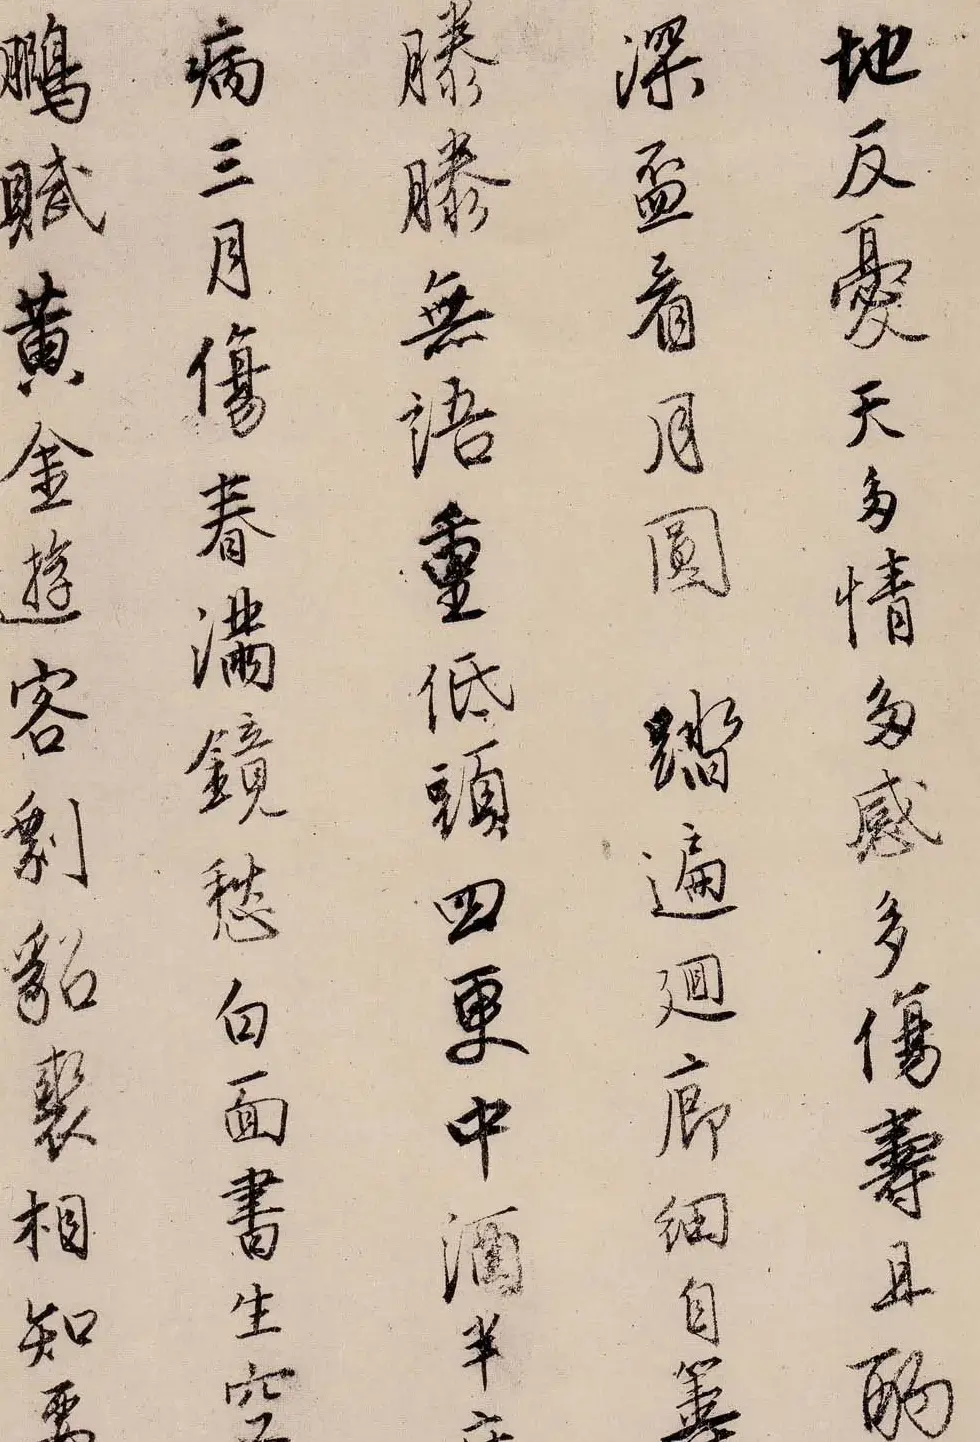 地反憂天多情多感多傷壽且酌
深盃看月圓 踏遍迴廊細自算
滕滕無語重低頭四更中酒半床
病三月傷春滿鏡愁白面書生空
鵩賦黃金遊客剩貂裘相知